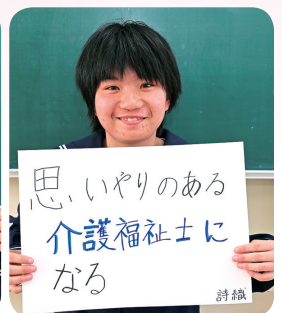 思いやりのある
介護福祉士に
なる
詩織